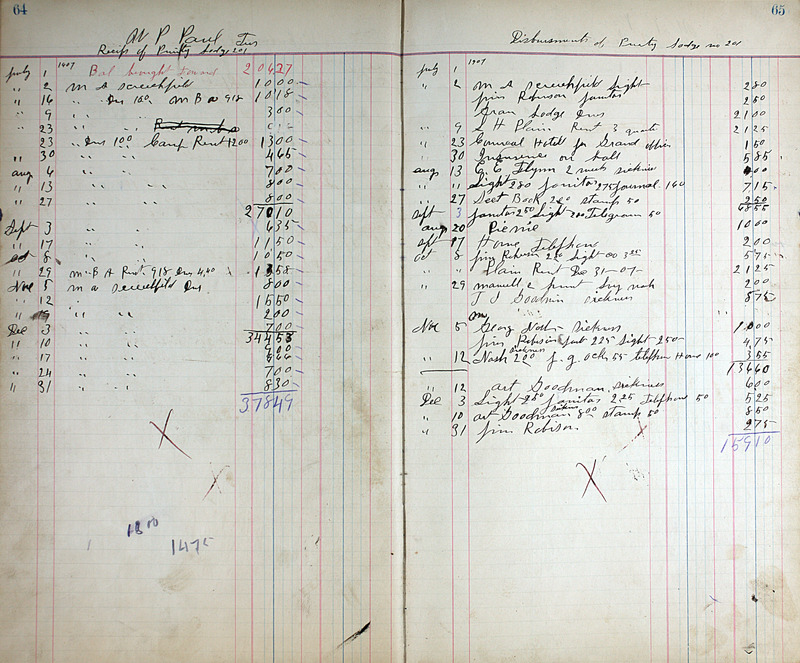 64
At P Paul Trs
Receipts of Purity Lodge 201
1907
July 1 Bal brought forward 204 27
" 2 M A Screechfield 10 00
" 16 " Dus 1.00 M B A 9.18 10 18
" 9 " " 3 00
" 23 " "
23 " Dus 1.00 Camp Rent 12.00 13 00
" 30 " " 4 65
Aug 6 " " 7 00
" 13 " " 8 00
" 27 " " 8 00
270 10
Sept 3 " " 6 35
" 17 " " 11 50
Oct 8 " " 10 50
" 29 M. B. A Rent. 9.18 Dus 4.40 13 58
Nov 5 M A Screechfield Dus. 8 00
" 12 " " 15 50
" " " 2 00
Dec 3 " " 7 00
344 53
" 10 " "
" 17 " "
" 24 " " 7 00
" 31 " " 8 30
378 49
18 00
1475
65
Disbursments of Purity Lodge no 201
1907
July 1
" 2 M A Screechfield Light 2 80
Jim Robison Janitor 2 50
Gran Lodge Dus 21 00
" 9 S H Plain Rent 3 quate 21 25
" 23 Hotel for Grand officer 1 50
" 30 Insurence on hall 5 85
Aug 13 C. E. Flynn 2 weeks sickness 00
" " Light 280 Janitor 275 Journal 160 7 15
" 27 Sect Book 200 stamps 50 2 50
68 55
Sept 3 Janitor 250 Light 200 Telegram 50
Aug 20 Picnic 10 00
Sept 17 Home Telephone 2 00
Oct 8 Jim Robison 250 Light 00 325 5 75
" " Plain Rent Dec 31-07- 21 25
" 29 2 00
T J Goodwin sickness 8 75
M,
Nov 5 Georg Nash Sickness 10 00
Jim Robison Janit 225 Light 250 4.75
" 12 Nash sickness 200 J. G. Ochs 55 telephone Home 100 3 55
136 60
" 12 Art Goodman, Sickness 6 00
Dec 3 Light 250 Janitor 2 25 Telephone 50 5 25
" 10 Art Goodman sickness 800 stamp 50 8 50
" 31 Jim Robison 2 75
159 10